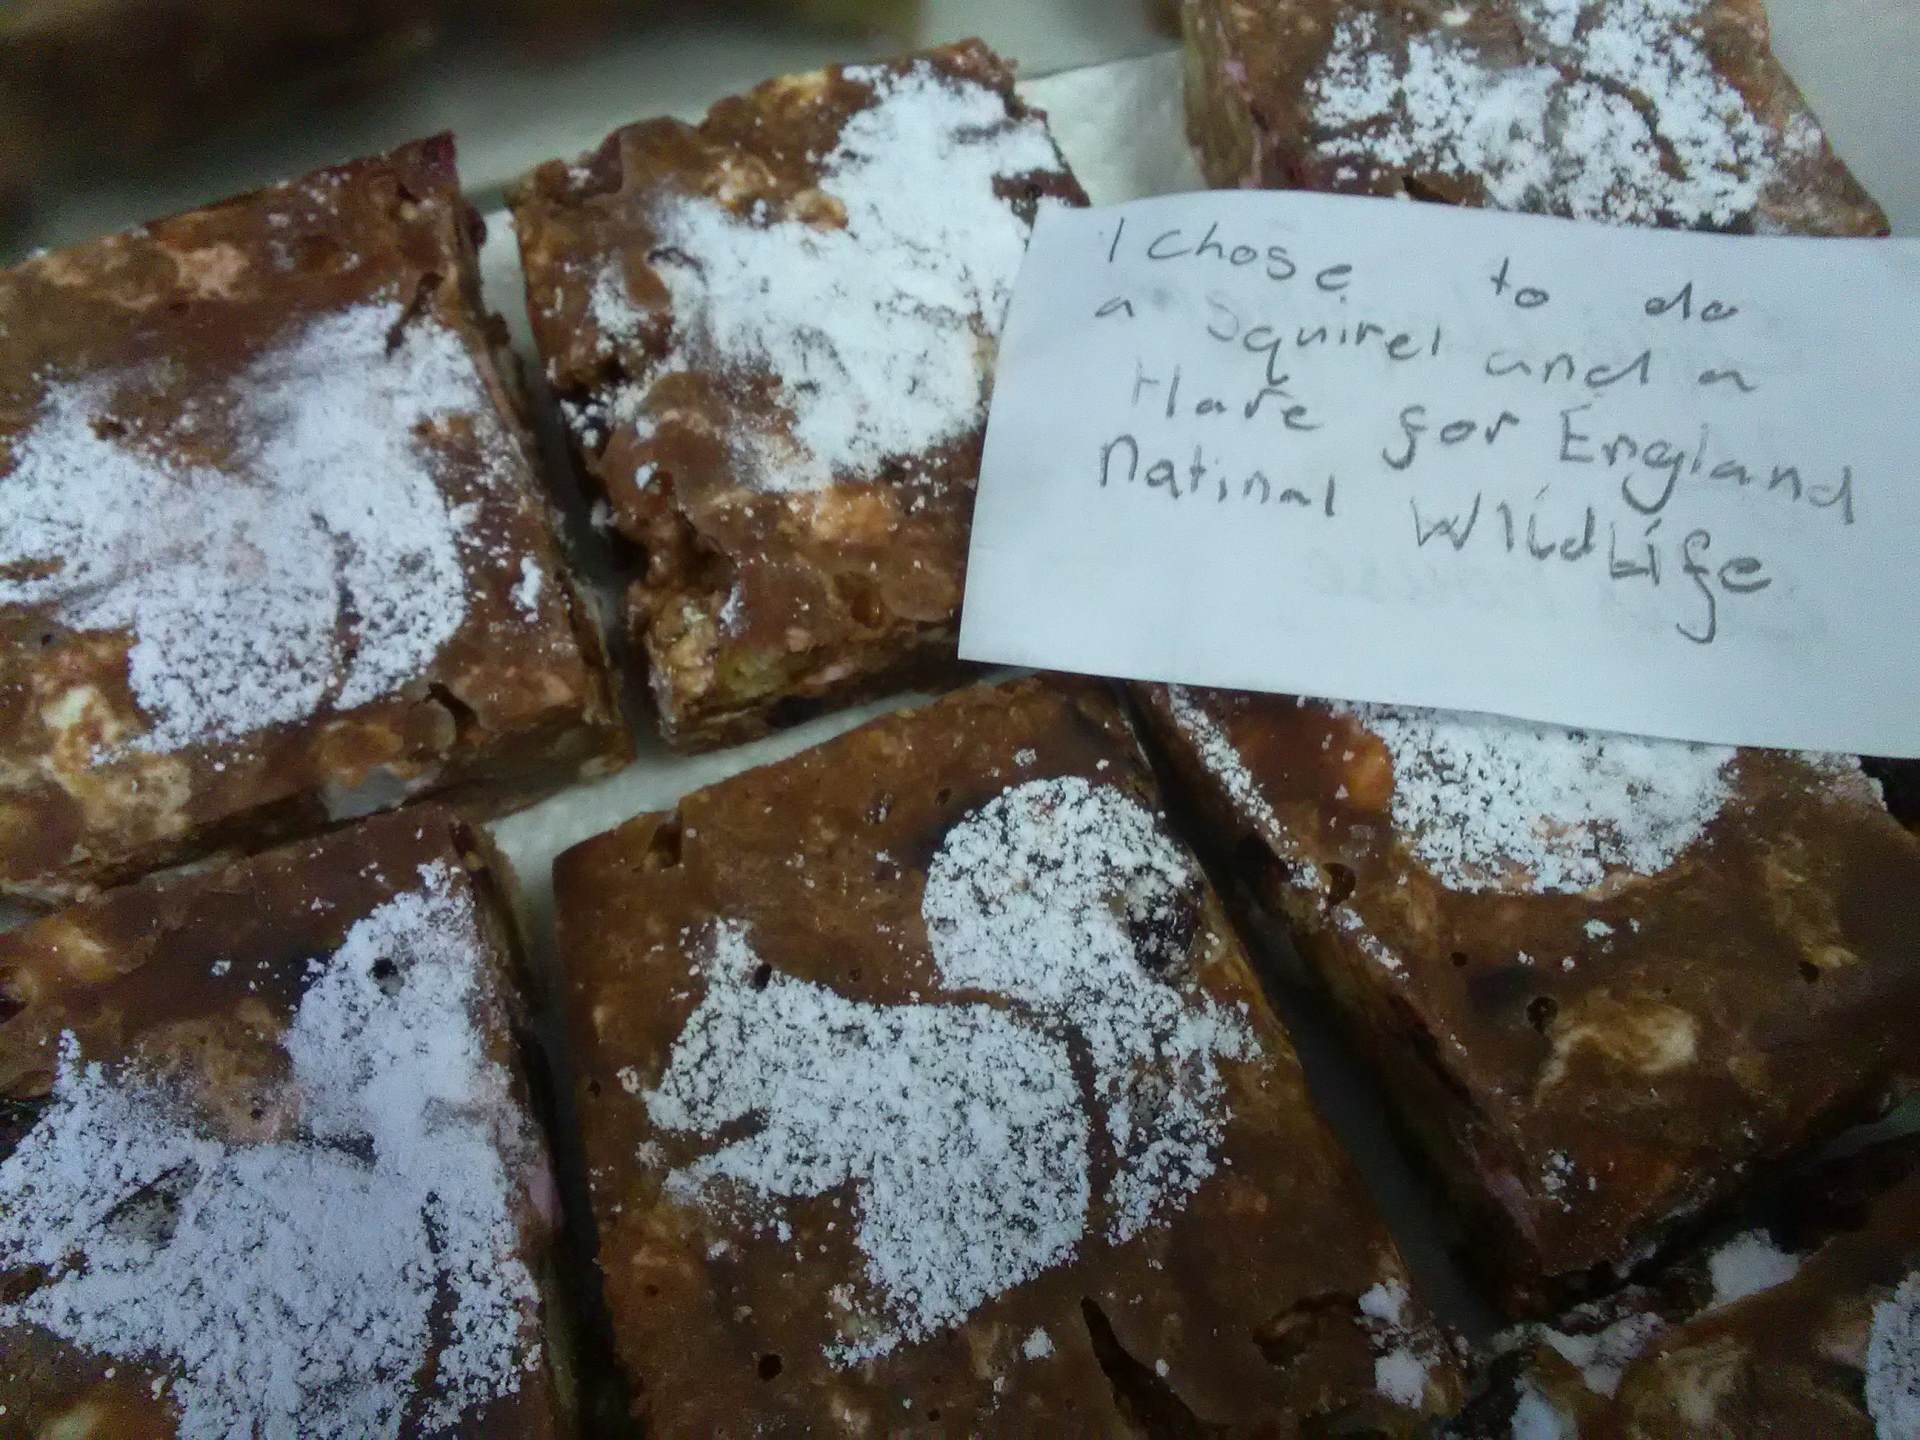 I chose to do
a Squirel and a
Hare for England
Natinal WildLife